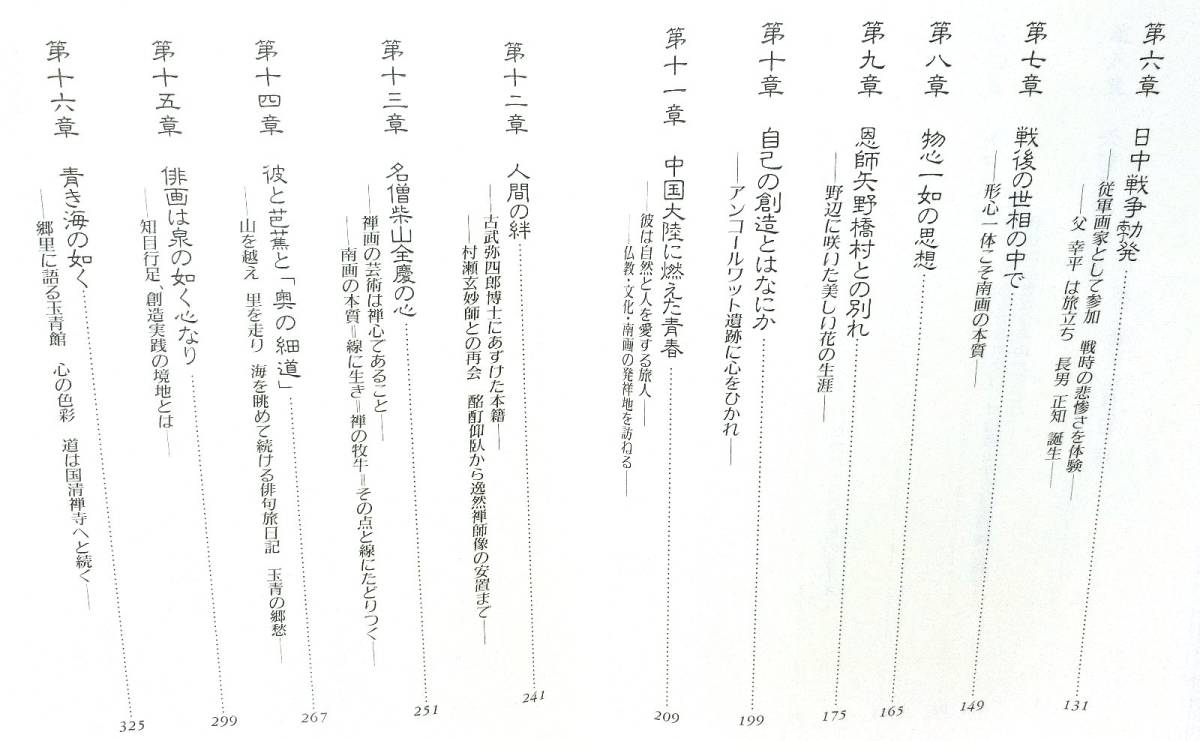 第六章 日中戦争勃発……131
——従軍画家として参加 戦時の悲惨さを体験——
——父 幸平 は旅立ち 長男 正知 誕生——
第七章 戦後の世相の中で……149
——形心一体こそ南画の本質——
第八章 物心一如の思想……165
第九章 恩師矢野橋村との別れ……175
——野辺に咲いた美しい花の生涯——
第十章 自己の創造とはなにか……199
——アンコールワット遺跡に心をひかれ——
第十一章 中国大陸に燃えた青春……209
——彼は自然と人を愛する旅人——
——仏教・文化・南画の発祥地を訪ねる——
第十二章 人間の絆……241
——古武弥四郎博士にあずけた本籍——
——村瀬玄妙師との再会 酩酊仰臥から逸然禅師像の安置まで——
第十三章 名僧柴山全慶の心……251
——禅画の芸術は禅心であること——
——南画の本質=線に生き=禅の牧牛=その点と線にたどりつく——
第十四章 彼と芭蕉と「奥の細道」……267
——山を越え 里を走り 海を眺めて続ける俳句旅日記 玉青の郷愁——
第十五章 俳画は泉の如く心なり……299
——知目行足、創造実践の境地とは——
第十六章 青き海の如く……325
——郷里に語る玉青館 心の色彩 道は国清禅寺へと続く——